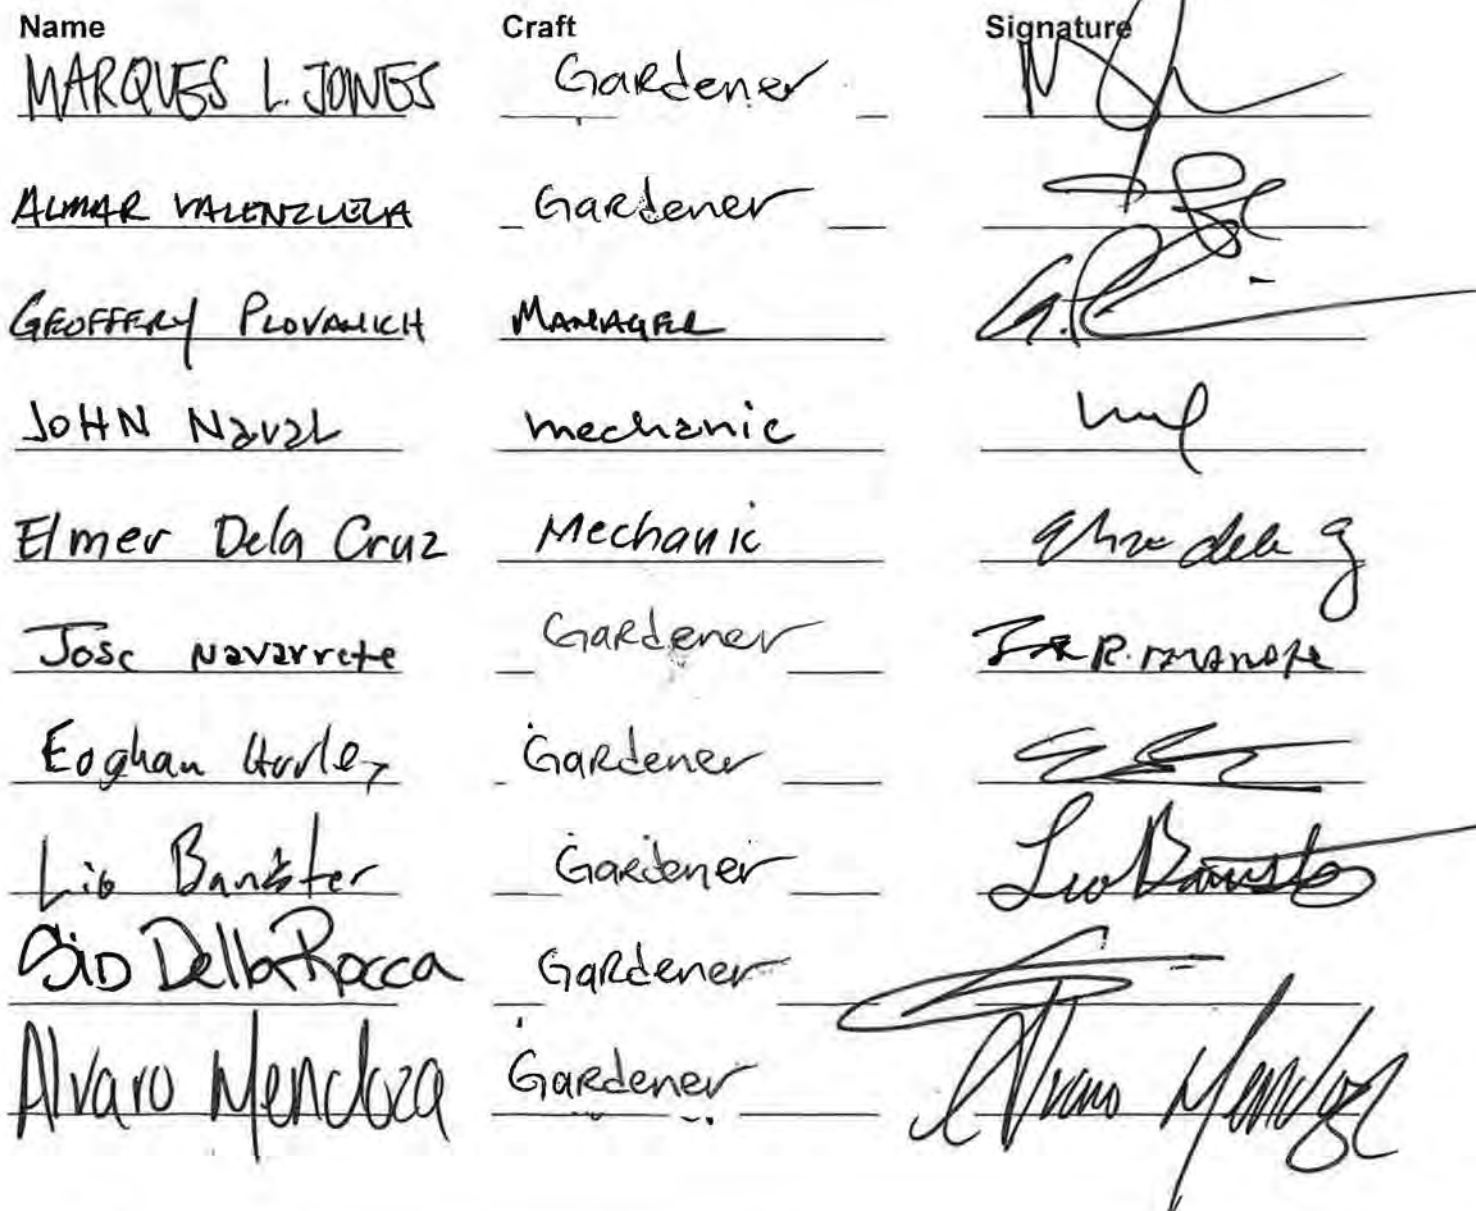 Name Craft Signature
MARQUES L. JONES Gardener
ALMAR VALENZUELA Gardener
GEOFFERY PLOVANICH MANAGER
JOHN Naval mechanic
Elmer Dela Cruz Mechanic
Jose Navarrete Gardener
Eoghan Hurley Gardener
Lio Banister Gardener
SiD DellaRocca Gardener
Alvaro Mendoza Gardener Alvaro Mendoza